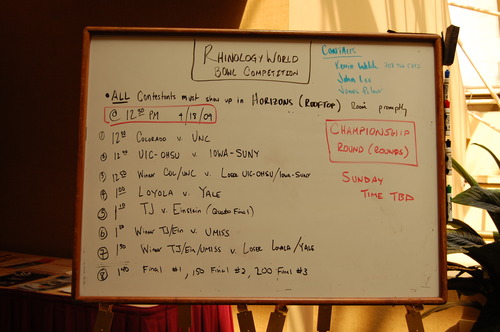 RHINOLOGY WORLD
BOWL COMPETITION
CONTACTS
Kevin Welch
John Lee
James Palmer
• ALL Contestants must show up in HORIZONS (ROOFTOP) Room promptly
@ 12:30 PM 4/18/09
CHAMPIONSHIP
ROUND (ROUNDS)
SUNDAY
TIME TBD
① 12 30 COLORADO v. UNC
② 12 40 UIC-OHSU v. IOWA-SUNY
③ 12 50 Winner COL/UNC v. LOSER UIC-OHSU/IOWA-SUNY
④ 1 00 LOYOLA v. YALE
⑤ 1 10 TJ v. EINSTEIN
⑥ 1 20 Winner TJ/EIN v. UMISS
⑦ 1 30 Winner TJ/EIN/UMISS v. LOSER LOYOLA/YALE
⑧ 1 40 FINAL #1, 150 FINAL #2, 200 FINAL #3